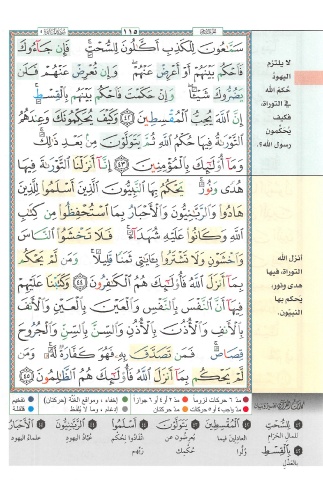 ١١٥
سَمَّٰعُونَ لِلْكَذِبِ أَكَّٰلُونَ لِلسُّحْتِ ۚ فَإِن جَآءُوكَ
فَٱحْكُم بَيْنَهُمْ أَوْ أَعْرِضْ عَنْهُمْ ۖ وَإِن تُعْرِضْ عَنْهُمْ فَلَن
يَضُرُّوكَ شَيْـًٔا ۖ وَإِنْ حَكَمْتَ فَٱحْكُم بَيْنَهُم بِٱلْقِسْطِ ۚ
إِنَّ ٱللَّهَ يُحِبُّ ٱلْمُقْسِطِينَ ٤٢ وَكَيْفَ يُحَكِّمُونَكَ وَعِندَهُمُ
ٱلتَّوْرَىٰةُ فِيهَا حُكْمُ ٱللَّهِ ثُمَّ يَتَوَلَّوْنَ مِنۢ بَعْدِ ذَٰلِكَ ۚ
وَمَآ أُو۟لَٰٓئِكَ بِٱلْمُؤْمِنِينَ ٤٣ إِنَّآ أَنزَلْنَا ٱلتَّوْرَىٰةَ فِيهَا
هُدًى وَنُورٌ ۚ يَحْكُمُ بِهَا ٱلنَّبِيُّونَ ٱلَّذِينَ أَسْلَمُوا۟ لِلَّذِينَ
هَادُوا۟ وَٱلرَّبَّٰنِيُّونَ وَٱلْأَحْبَارُ بِمَا ٱسْتُحْفِظُوا۟ مِن كِتَٰبِ
ٱللَّهِ وَكَانُوا۟ عَلَيْهِ شُهَدَآءَ ۚ فَلَا تَخْشَوُا۟ ٱلنَّاسَ
وَٱخْشَوْنِ وَلَا تَشْتَرُوا۟ بِـَٔايَٰتِى ثَمَنًا قَلِيلًا ۚ وَمَن لَّمْ يَحْكُم
بِمَآ أَنزَلَ ٱللَّهُ فَأُو۟لَٰٓئِكَ هُمُ ٱلْكَٰفِرُونَ ٤٤ وَكَتَبْنَا عَلَيْهِمْ
فِيهَآ أَنَّ ٱلنَّفْسَ بِٱلنَّفْسِ وَٱلْعَيْنَ بِٱلْعَيْنِ وَٱلْأَنفَ
بِٱلْأَنفِ وَٱلْأُذُنَ بِٱلْأُذُنِ وَٱلسِّنَّ بِٱلسِّنِّ وَٱلْجُرُوحَ
قِصَاصٌ ۚ فَمَن تَصَدَّقَ بِهِۦ فَهُوَ كَفَّارَةٌ لَّهُۥ ۚ وَمَن
لَّمْ يَحْكُم بِمَآ أَنزَلَ ٱللَّهُ فَأُو۟لَٰٓئِكَ هُمُ ٱلظَّٰلِمُونَ ٤٥
لا يلتزم
اليهودُ
حُكمَ الله
في التوراة،
فكيف
يُحكّمون
رسول الله؟.
أنزل الله
التوراة، فيها
هدى ونور،
يَحكم بها
النبيّون.
مدّ ٦ حركات لزوما
مدّ ٢ أو ٤ أو ٦ جوازا
إخفاء، ومواقع الغُنَّة (حركتان)
تفخيم
مدّ واجب ٤ أو ٥ حركات
مدّ حركتان
إدغام، وما لا يُلفَظ
قلقلة
لِلسُّحْتِ
للمال الحرام
بِالْقِسْطِ
بالعدل
الْمُقْسِطِينَ
العادلين فيما
وُلُّوا
يَتَوَلَّوْنَ
يُعرضون عن
حُكمك
أَسْلَمُوا
انقادوا لحكم
ربّهم
الرَّبَّانِيُّونَ
عُبّاد اليهود
الْأَحْبَارُ
علماء اليهود